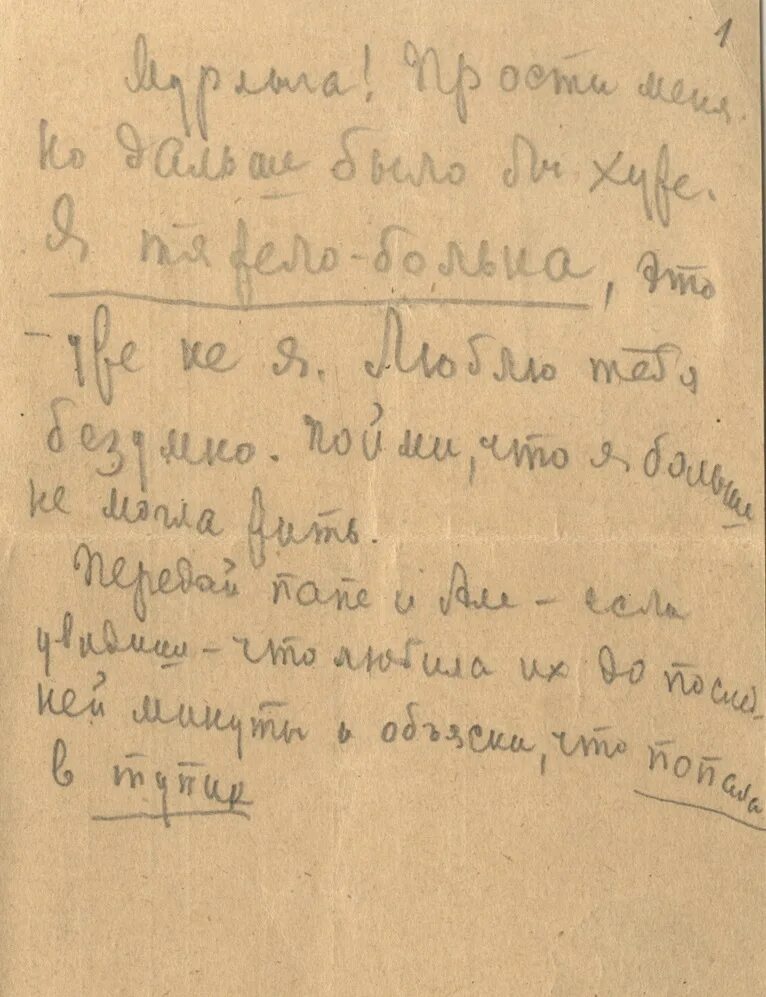 1
Мурлыга! Прости меня.
но дальше было бы хуже.
Я тяжело-больна, это
– уже не я. Люблю тебя
безумно. Пойми, что я больше
не могла жить.
Передай папе и Але – если
увидишь – что любила их до послед-
ней минуты и объясни, что попала
в тупик